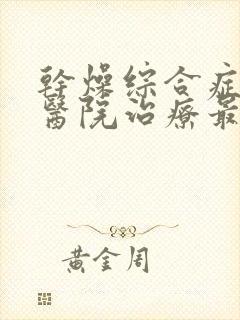 幹燥綜合症
醫院治療最
黃金周